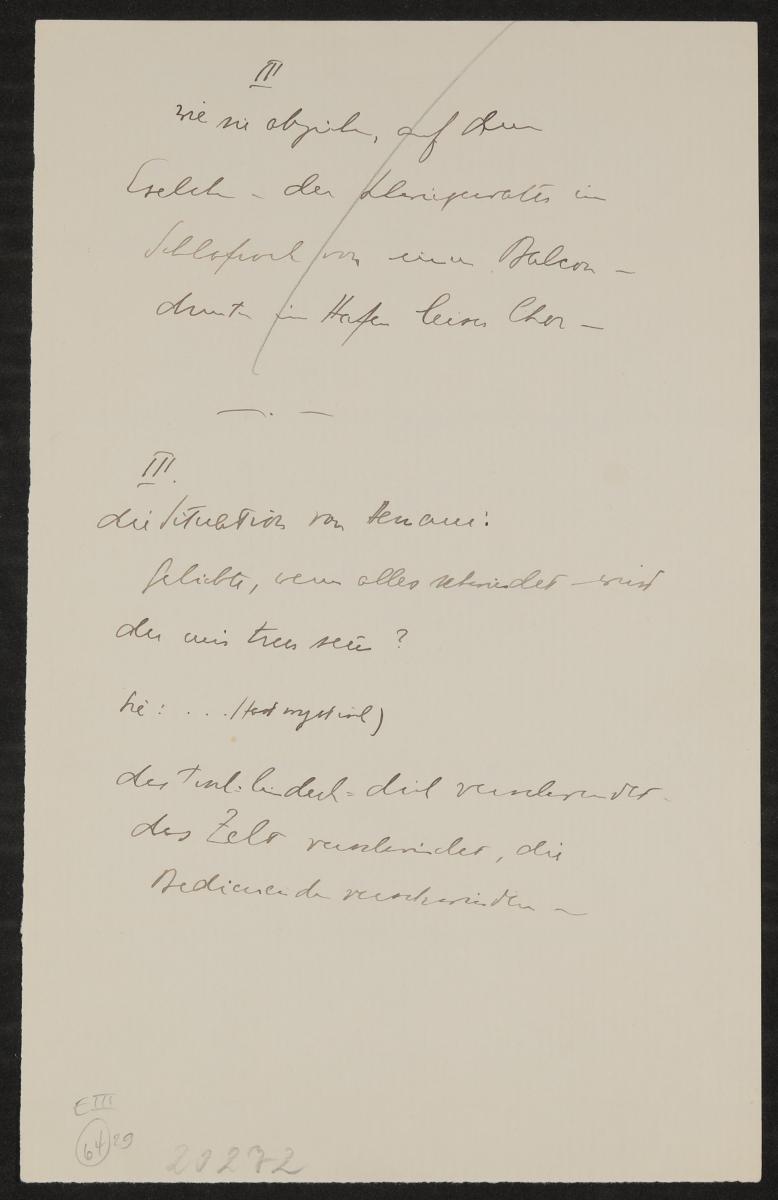 III
wie sie abziehen, auf dem
Eselch – der im
Schlafrock von einem Balcon –
drunten im Hafen leiser Chor –
III.
die Situation von :
Geliebte, wenn alles schwindet – wirst
du mir treu sein?
Sie: . . . (fast mystisch)
das verschwindet –
das Zelt verschwindet, die
Bedienenden verschwinden –
E III
64 29
20272